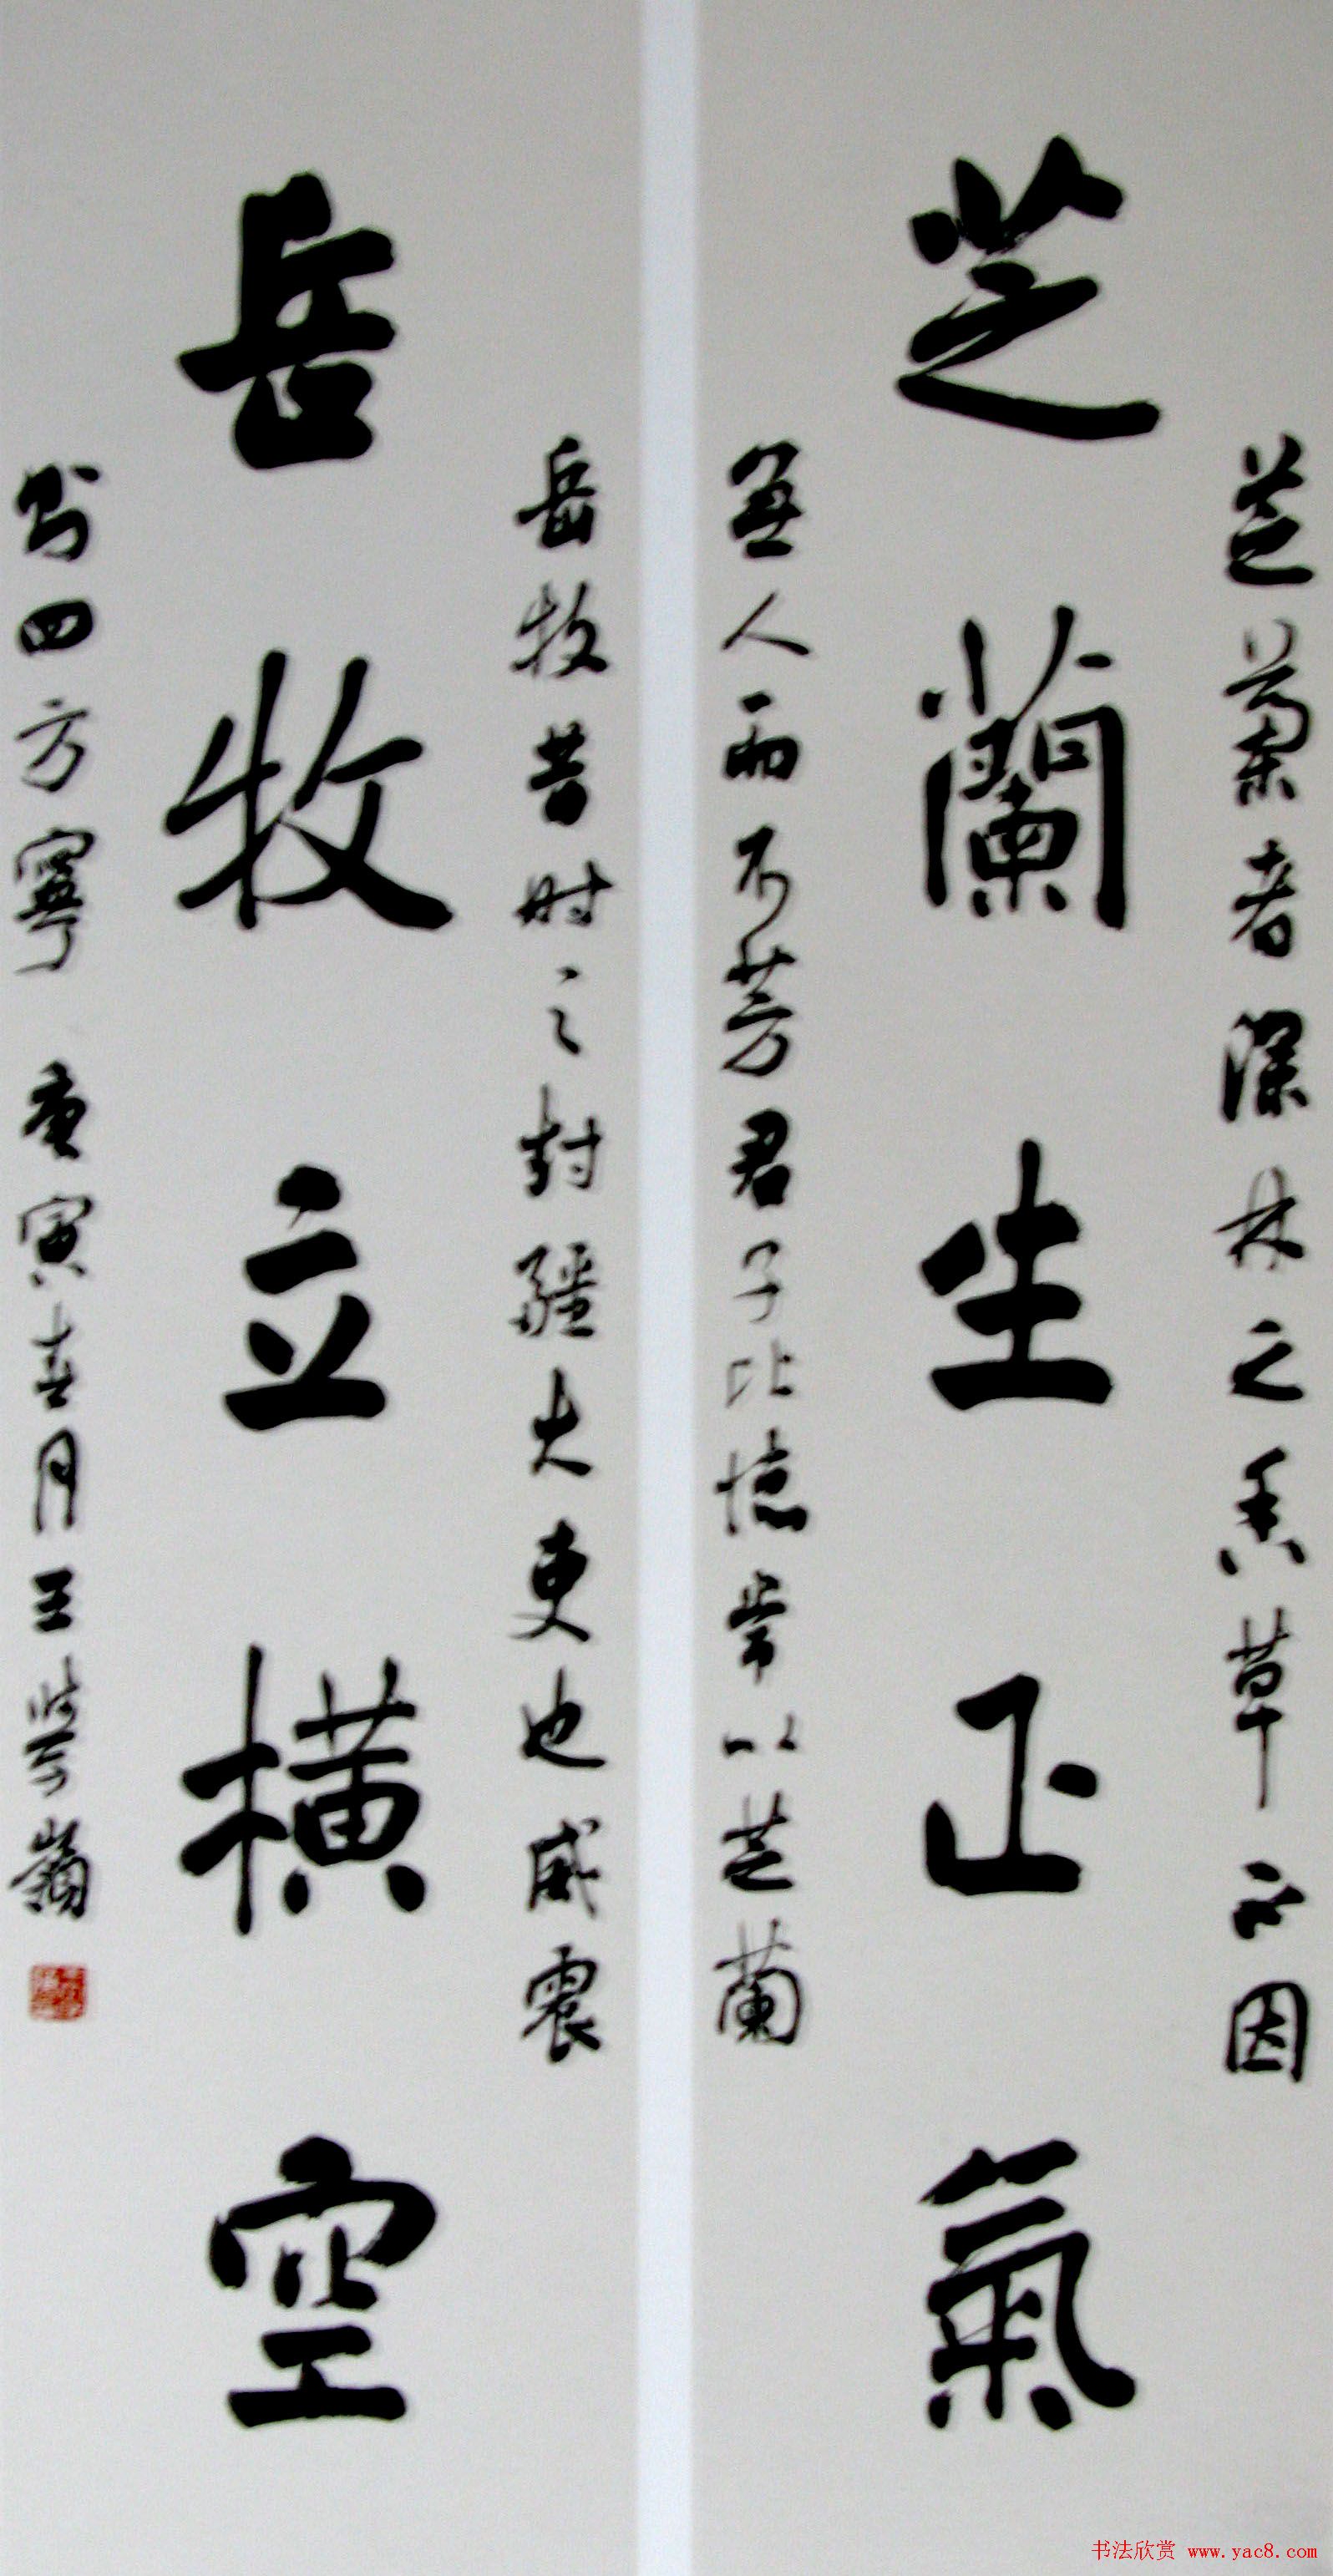 芝蘭生正氣
芝蘭者深林之香草不因
無人而不芳君子比德常以芝蘭
岳牧立橫空
岳牧昔時之封疆大吏也威震
則四方寧 庚寅春月王
书法欣赏 www.yac8.com